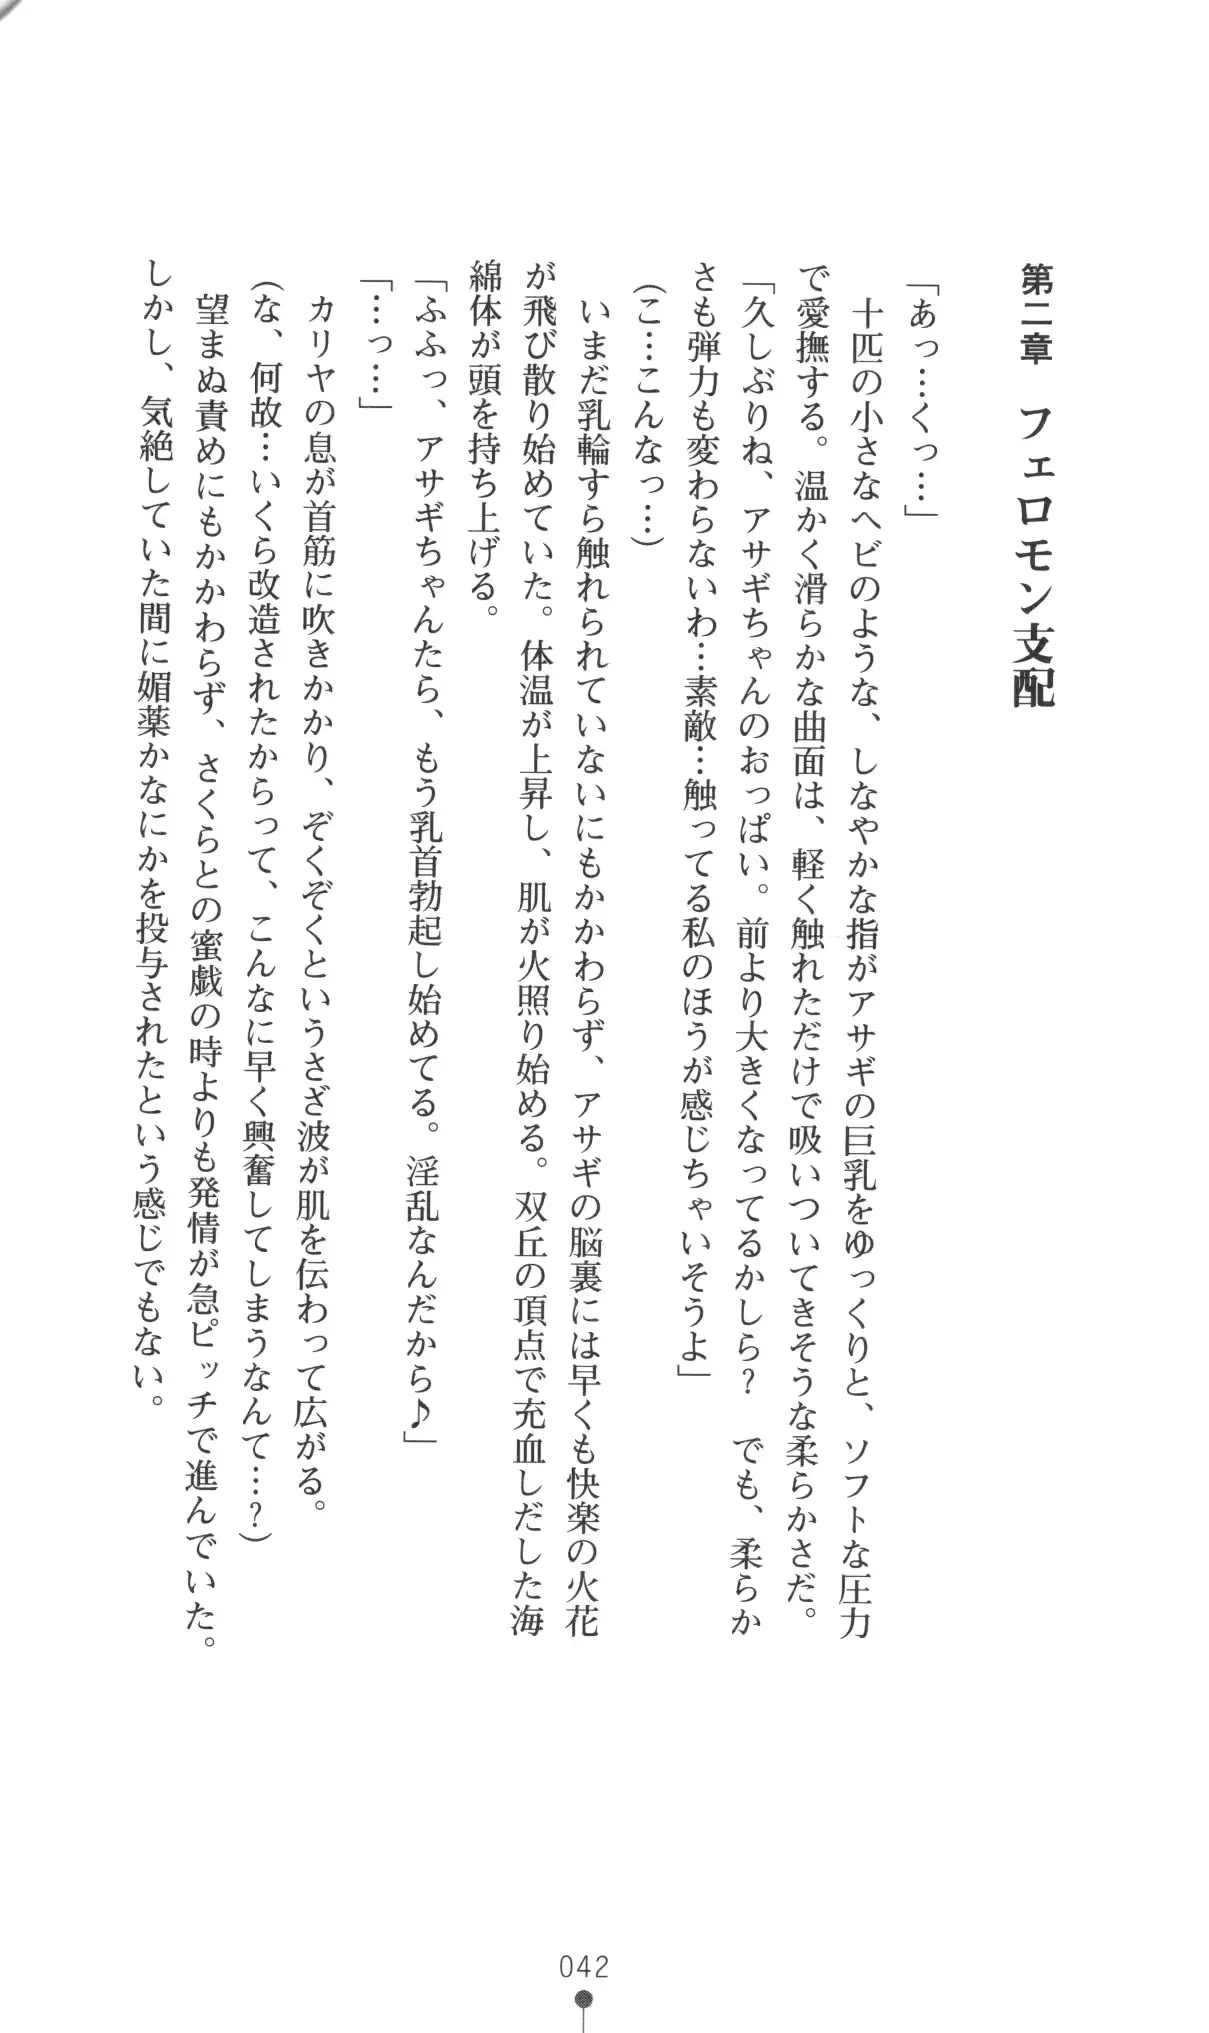 第二章　フェロモン支配
「あっ…くっ…」
　十匹の小さなヘビのような、しなやかな指がアサギの巨乳をゆっくりと、ソフトな圧力
で愛撫する。温かく滑らかな曲面は、軽く触れただけで吸いついてきそうな柔らかさだ。
「久しぶりね、アサギちゃんのおっぱい。前より大きくなってるかしら?　でも、柔らか
さも弾力も変わらないわ…素敵…触ってる私のほうが感じちゃいそうよ」
(こ…こんなっ…)
　いまだ乳輪すら触れられていないにもかかわらず、アサギの脳裏には早くも快楽の火花
が飛び散り始めていた。体温が上昇し、肌が火照り始める。双丘の頂点で充血しだした海
綿体が頭を持ち上げる。
「ふふっ、アサギちゃんたら、もう乳首勃起し始めてる。淫乱なんだから♪」
「…っ…」
　カリヤの息が首筋に吹きかかり、ぞくぞくというさざ波が肌を伝わって広がる。
(な、何故…いくら改造されたからって、こんなに早く興奮してしまうなんて…?)
　望まぬ責めにもかかわらず、さくらとの蜜戯の時よりも発情が急ピッチで進んでいた。
しかし、気絶していた間に媚薬かなにかを投与されたという感じでもない。
042